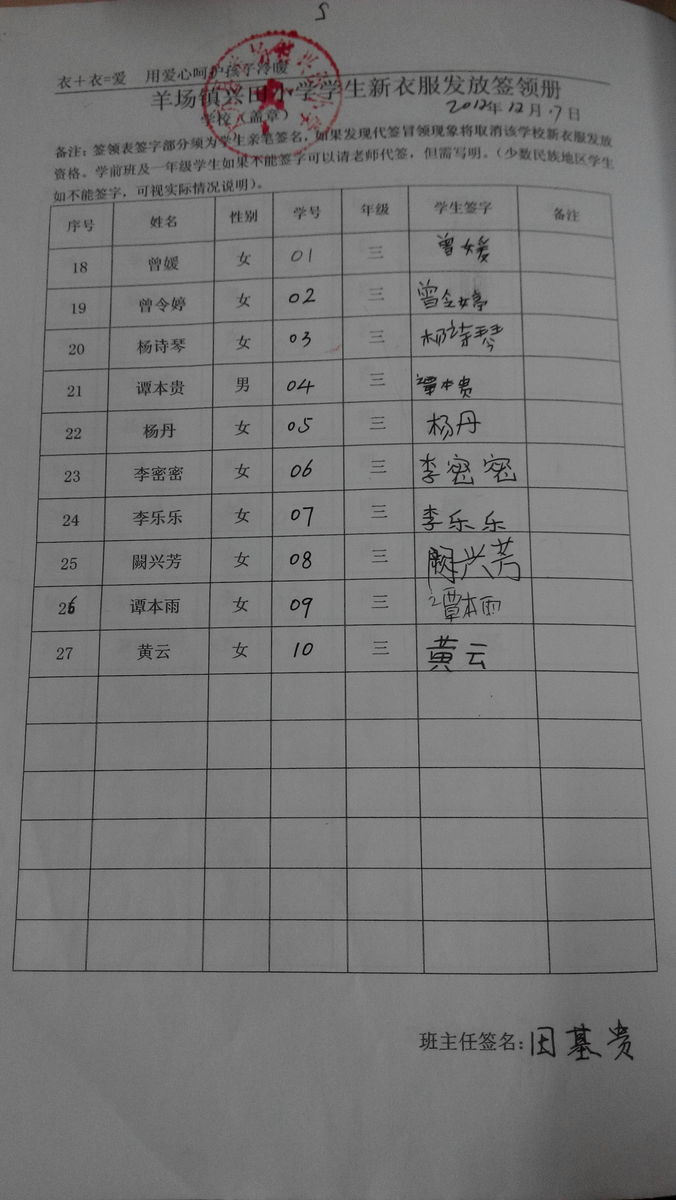 5
衣+衣=爱 用爱心呵护孩子冷暖
羊场镇兴田小学学生新衣服发放签领册
学校（盖章） 2012年12月.7日
备注：签领表签字部分须为学生亲笔签名，如果发现代签冒领现象将取消该学校新衣服发放
资格。学前班及一年级学生如果不能签字可以请老师代签，但需写明。（少数民族地区学生
如不能签字，可视实际情况说明）。
序号 姓名 性别 学号 年级 学生签字 备注
18 曾媛 女 01 三 曾媛
19 曾令婷 女 02 三 曾令婷
20 杨诗琴 女 03 三 杨诗琴
21 谭本贵 男 04 三 谭本贵
22 杨丹 女 05 三 杨丹
23 李密密 女 06 三 李密密
24 李乐乐 女 07 三 李乐乐
25 阙兴芳 女 08 三 阙兴芳
26 谭本雨 女 09 三 谭本雨
27 黄云 女 10 三 黄云
班主任签名：因基贵